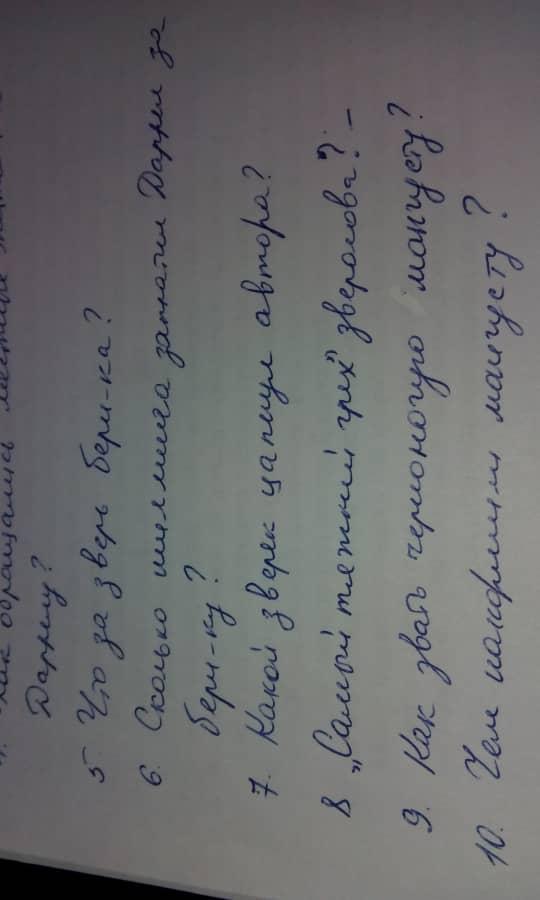 4. Как обращались местные
Дареллу?
5. Что за зверь бери-ка?
6. Сколько шиллингов заплатил Даррелл за
бери-ку?
7. Какой зверек цапнул автора?
8 „Самый тяжкий грех" зверолова"? –
9. Как звать черноногую мангусту?
10. Чем накормили мангусту?